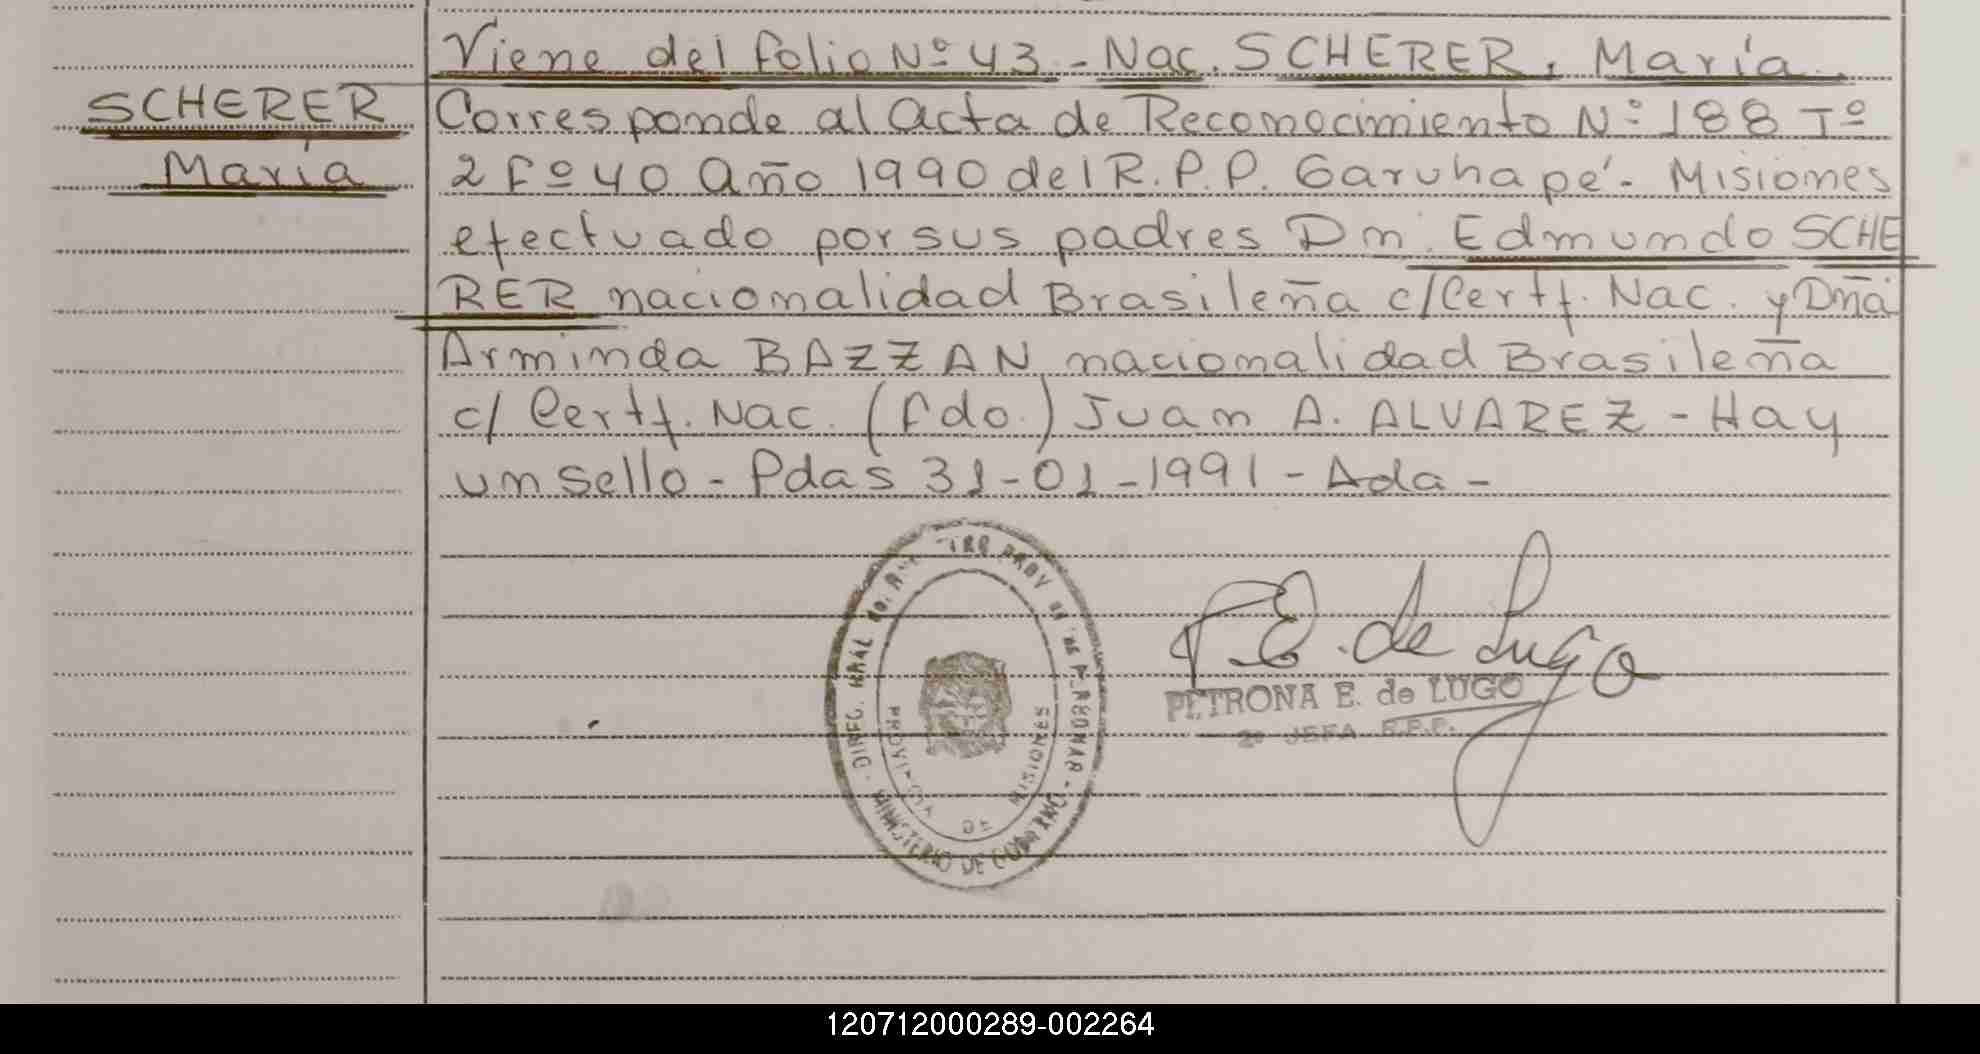 Viene del folio Nº 43 - Nac. SCHERER, María.
SCHERER
María
Corresponde al acta de Reconocimiento Nº 188 Tº
2 Fº 40 año 1990 del R.P.P. Garuhapé - Misiones
efectuado por sus padres Dn. Edmundo SCHE
RER nacionalidad Brasileña c/Certf. Nac. y Dña
Arminda BAZZAN nacionalidad Brasileña
c/ Certf. Nac. (Fdo.) Juan A. ALVAREZ - Hay
un sello - Pdas 31-01-1991 - Ada -
P. E. de Lugo
PETRONA E. de LUGO
2º JEFA R.P.P.
MINISTERIO DE GOBIERNO
PROVINCIA DE MISIONES
120712000289-002264